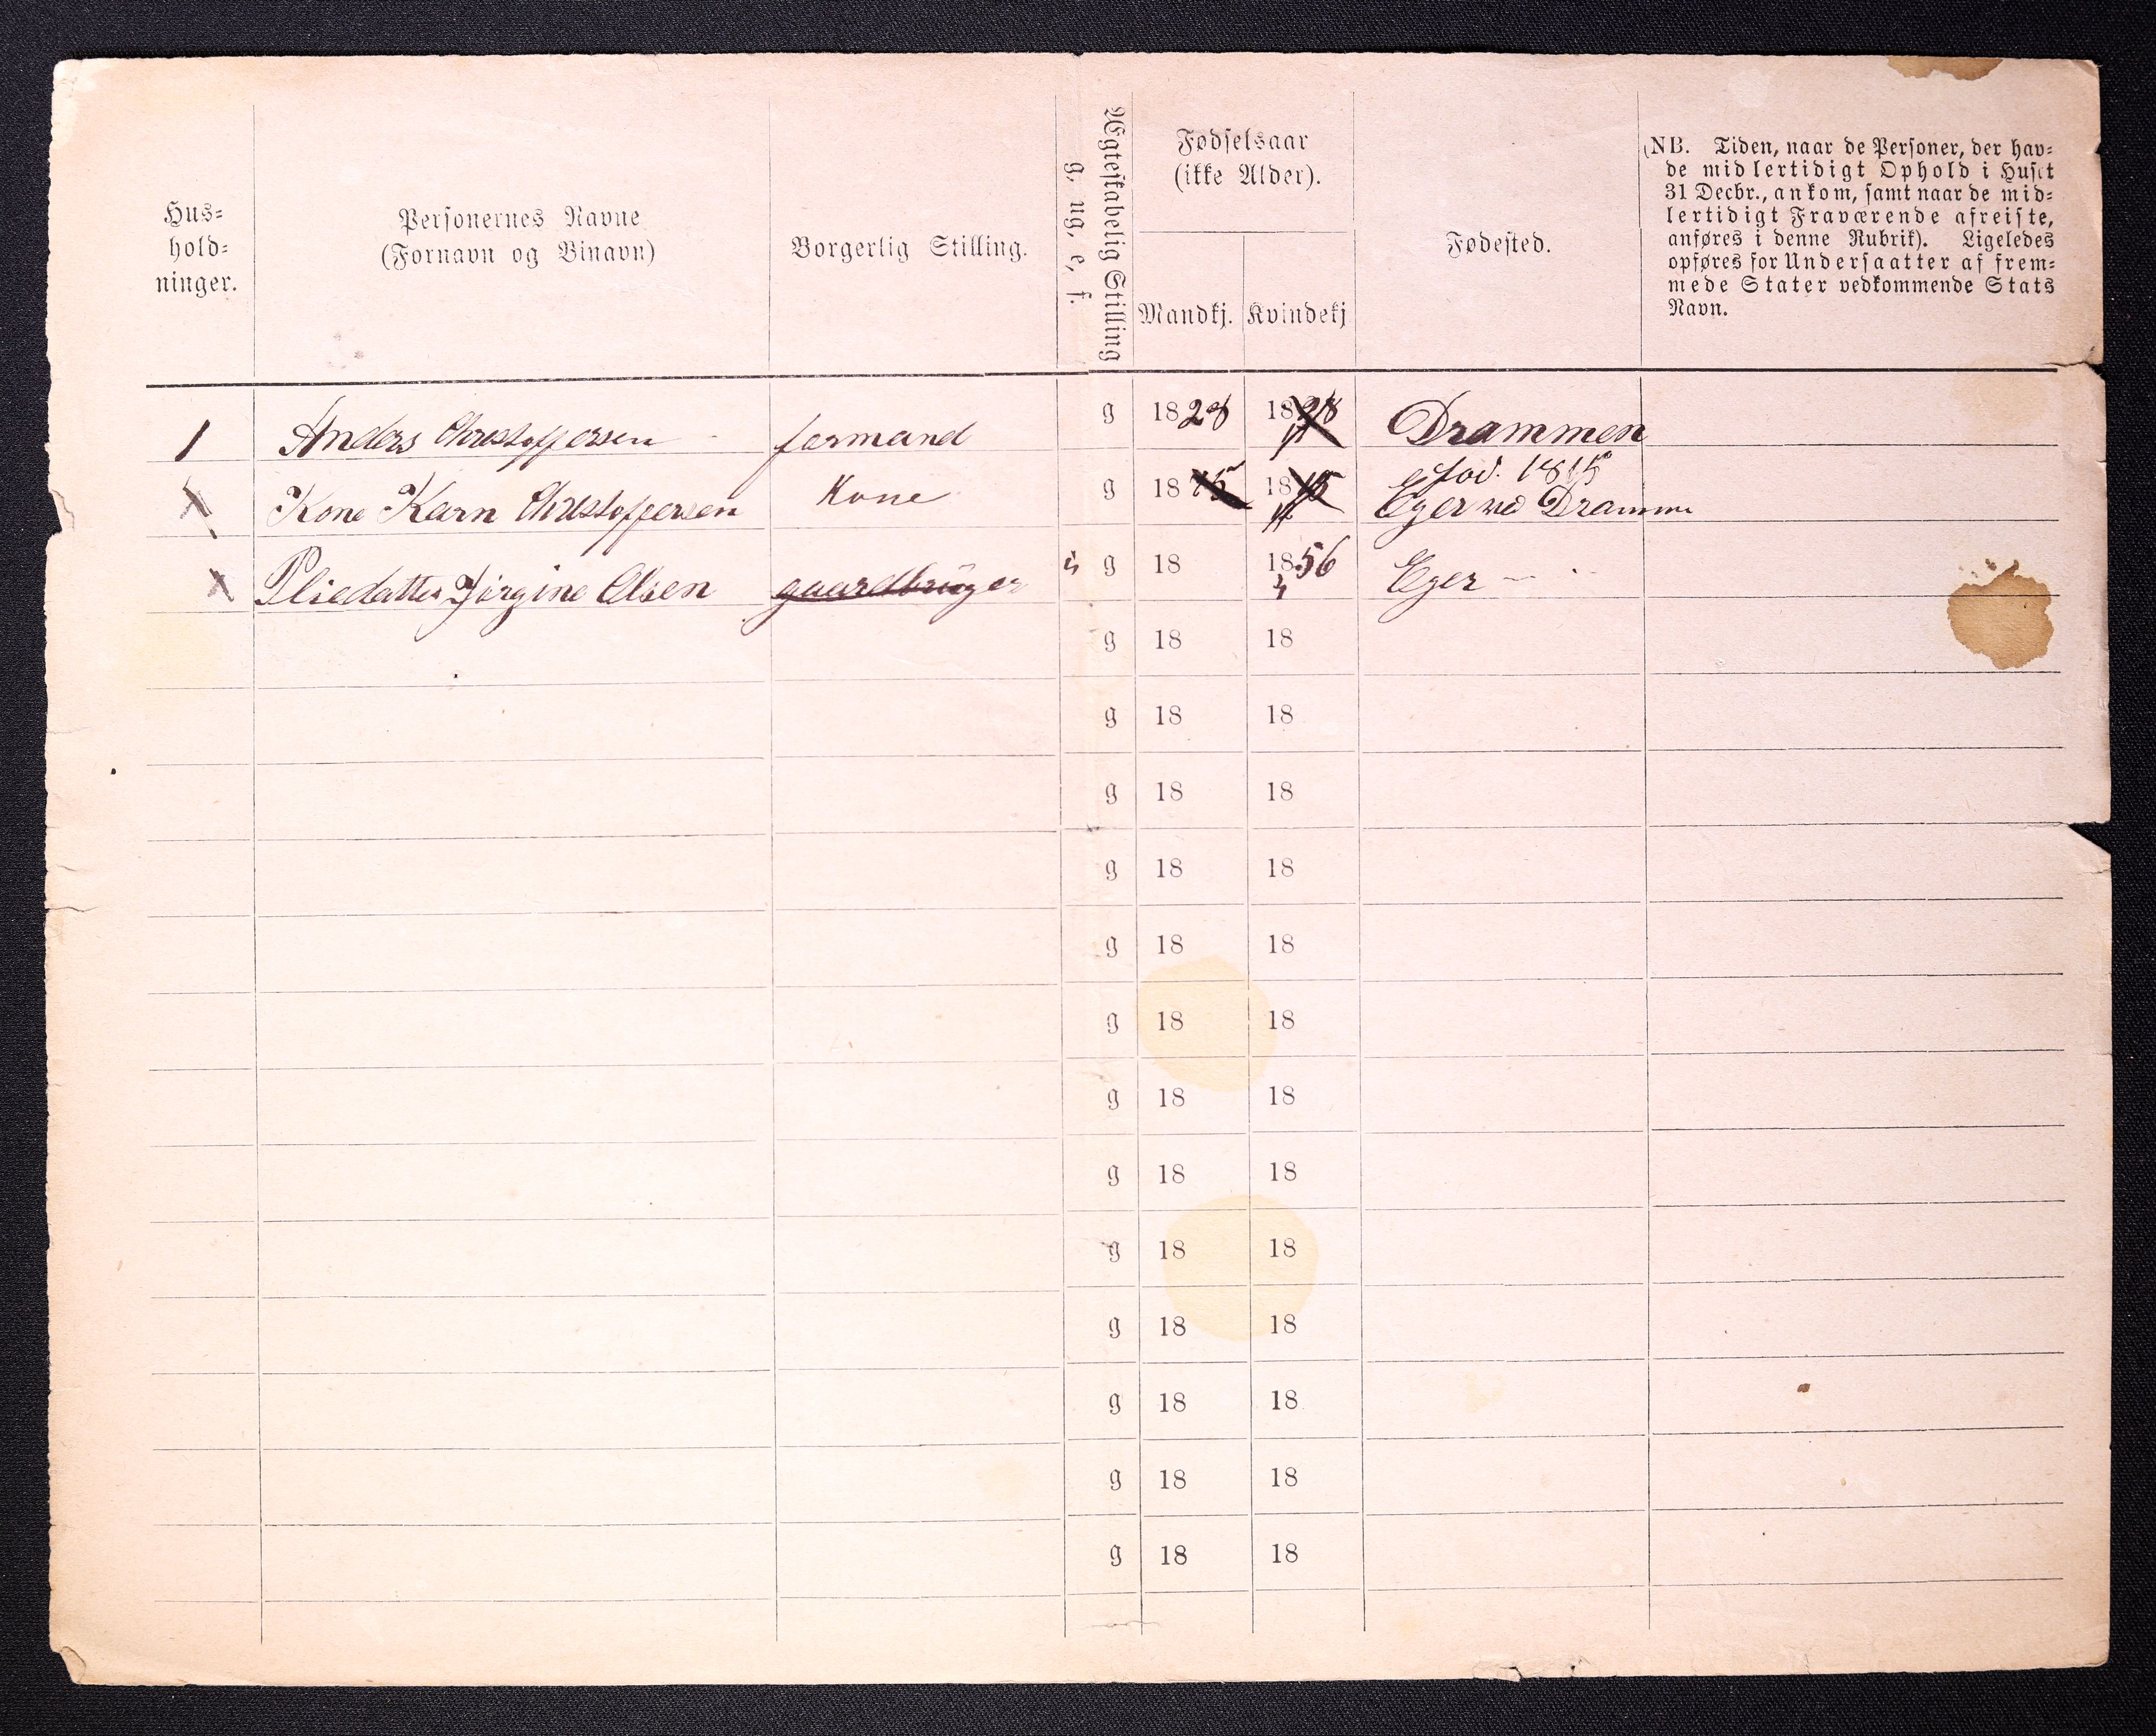 Hus=
hold=
ninger.
Personernes Navne
(Fornavn og Binavn)
Borgerlig Stilling.
Ægteskabelig Stilling
g, ug, e, f.
Fødselsaar
(ikke Alder).
Mandkj. Kvindekj
Fødested.
(NB. Tiden, naar de Personer, der hav=
de midlertidigt Ophold i Huset
31 Decbr., ankom, samt naar de mid=
lertidigt Fraværende afreiste,
anføres i denne Rubrik). Ligeledes
opføres for Undersaatter af frem=
mede Stater vedkommende Stats
Navn.
1 Anders Christoffersen formand g 1828 1828 Drammen
fød. 1815
Kone Karn Christoffersen Kone g 1815 1815 Eger ved Dramme
Pliedatter Jørgine Olsen gaardbruger g 18 1856 Eger
g 18 18
g 18 18
g 18 18
g 18 18
g 18 18
g 18 18
g 18 18
g 18 18
g 18 18
g 18 18
g 18 18
g 18 18
g 18 18